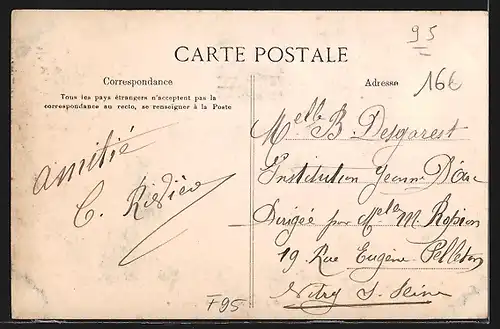 95
CARTE POSTALE
Correspondance
Tous les pays étrangers n'acceptent pas la
correspondance au recto, se renseigner à la Poste
Adresse
16€
amitié
C.
Melle B. Desgarest
Institution Jeanne D'Arc
Dirigée par Melle M. Robion
19 Rue Eugène Pelletan
Vitry s. Seine
F95